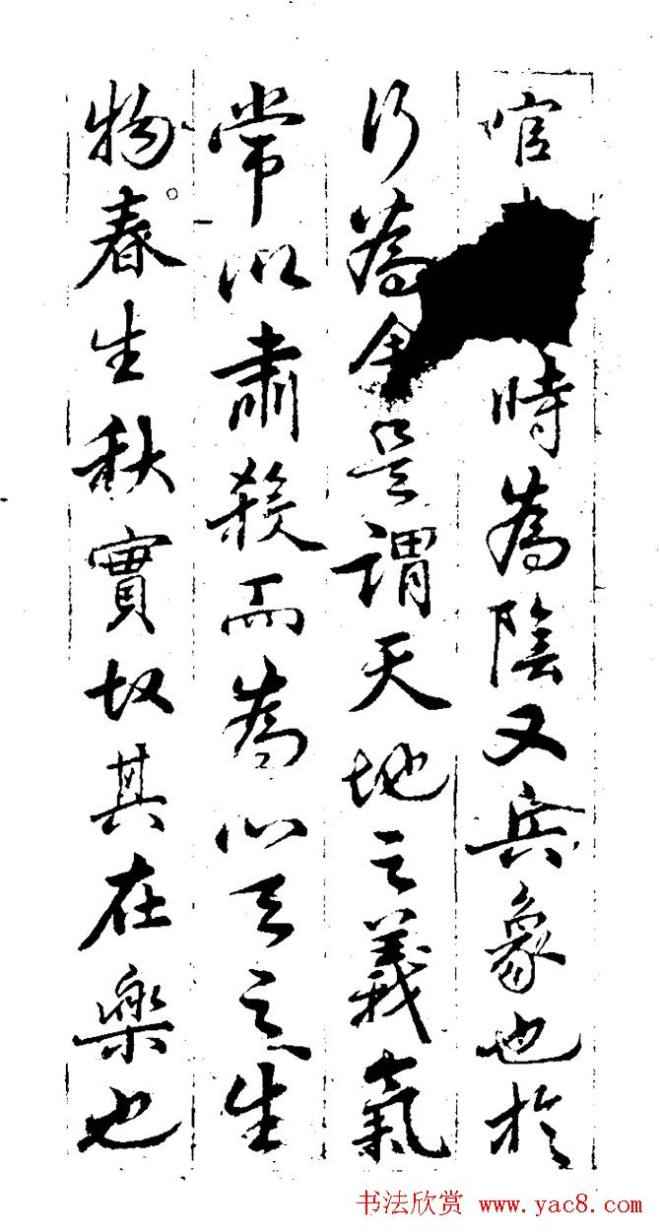 官時為陰又兵象也於
行為金是謂天地之義氣
常以肅殺而為心天之生
物春生秋實故其在樂也
书法欣赏 www.yac8.com